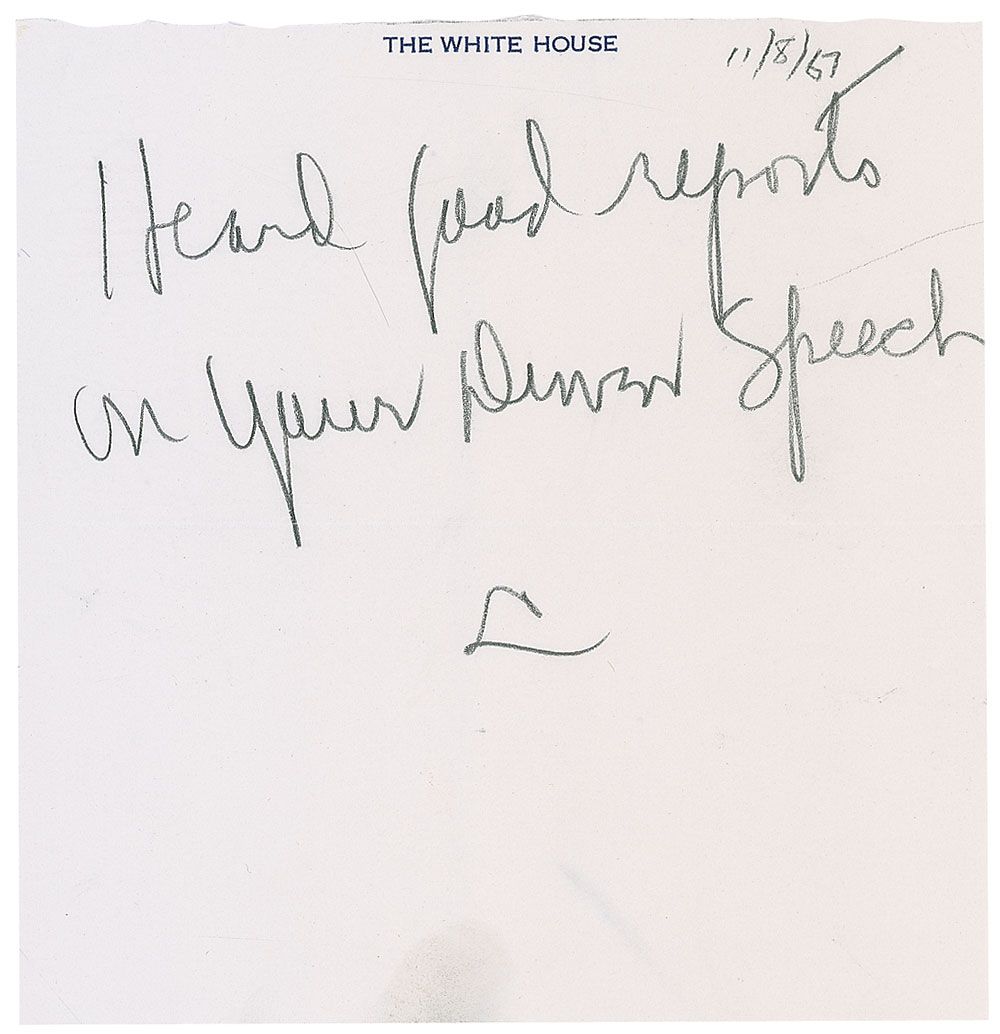 THE WHITE HOUSE
11/8/67
Heard good reports
on your Denver Speech
L